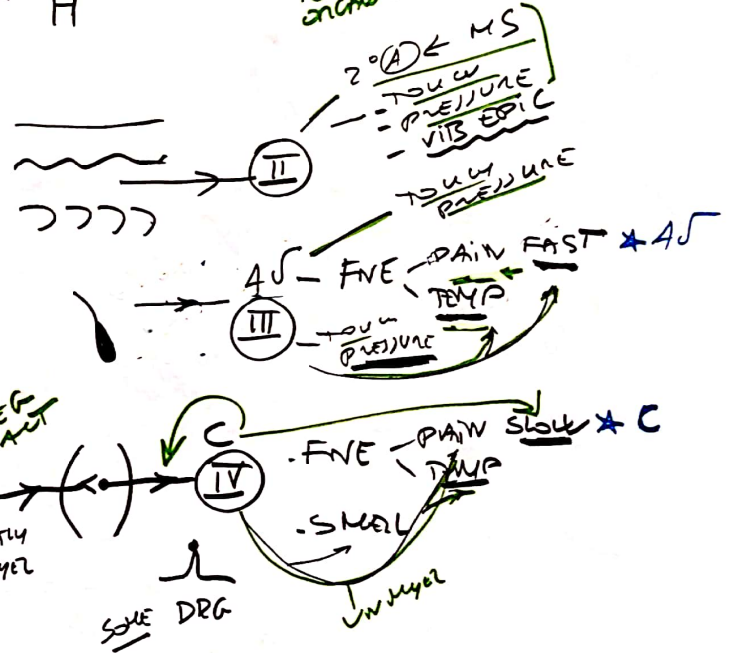 H
2° A ← MS
TOUCH
- PRESSURE
- VIB EPIC
II
TOUCH
PRESSURE
Aδ - FNE
PAIN FAST ★ Aδ
TEMP
III
TOUCH
PRESSURE
C
IV
. FNE
PAIN SLOW ★ C
TEMP
. SMELL
UNMYEL
SOME DRG